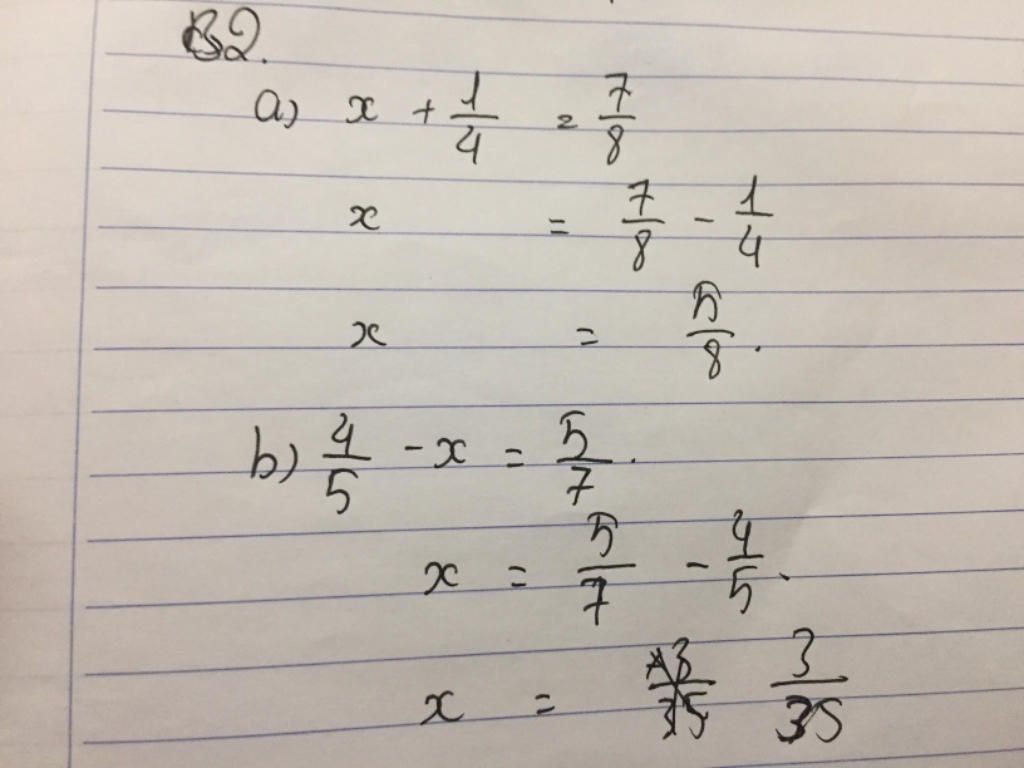 B2.
a) x + 1/4 = 7/8
x = 7/8 - 1/4
x = 5/8.
b) 4/5 - x = 5/7.
x = 5/7 - 4/5.
x = 3/35